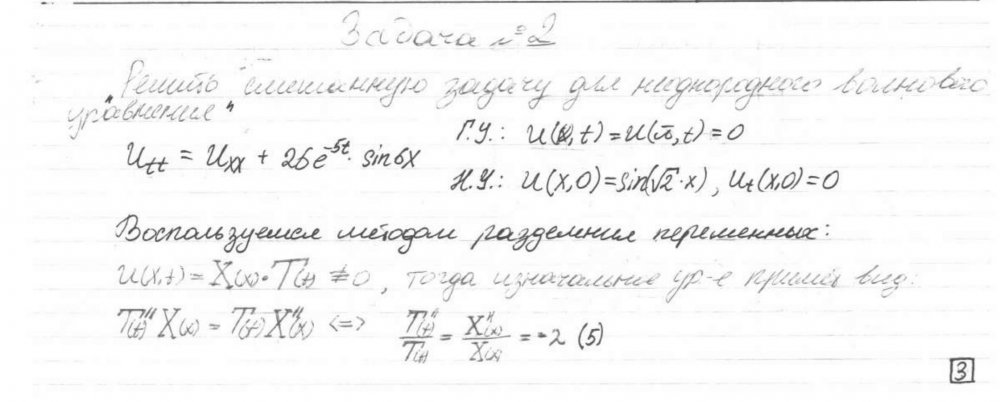 Задача №2
"Решить смешанную задачу для неоднородного волнового
уравнения"
Г.У.: u(0,t)=u(π,t)=0
U_tt = U_xx + 26e^{-5t}·sin6x
Н.У.: u(x,0)=sin(√2·x), u_t(x,0)=0
Воспользуемся методом разделения переменных:
u(x,t)=X(x)·T(t)≠0, тогда изначальное ур-е примет вид:
T(t)''X(x)=T(t)X''(x) <=> T(t)''/T(t) = X''(x)/X(x) = -λ (5)
3